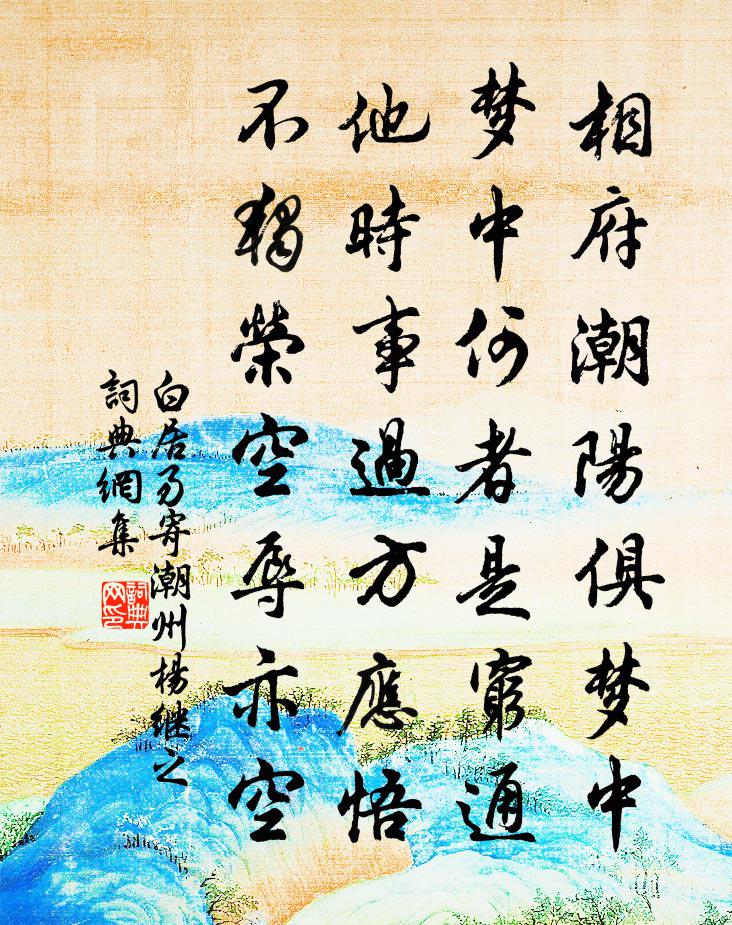 相府潮陽俱梦中
梦中何者是窮通
他時事過方應悟
不獨榮空辱亦空
白居易寄潮州楊继之
詞典網集
詞典
网印